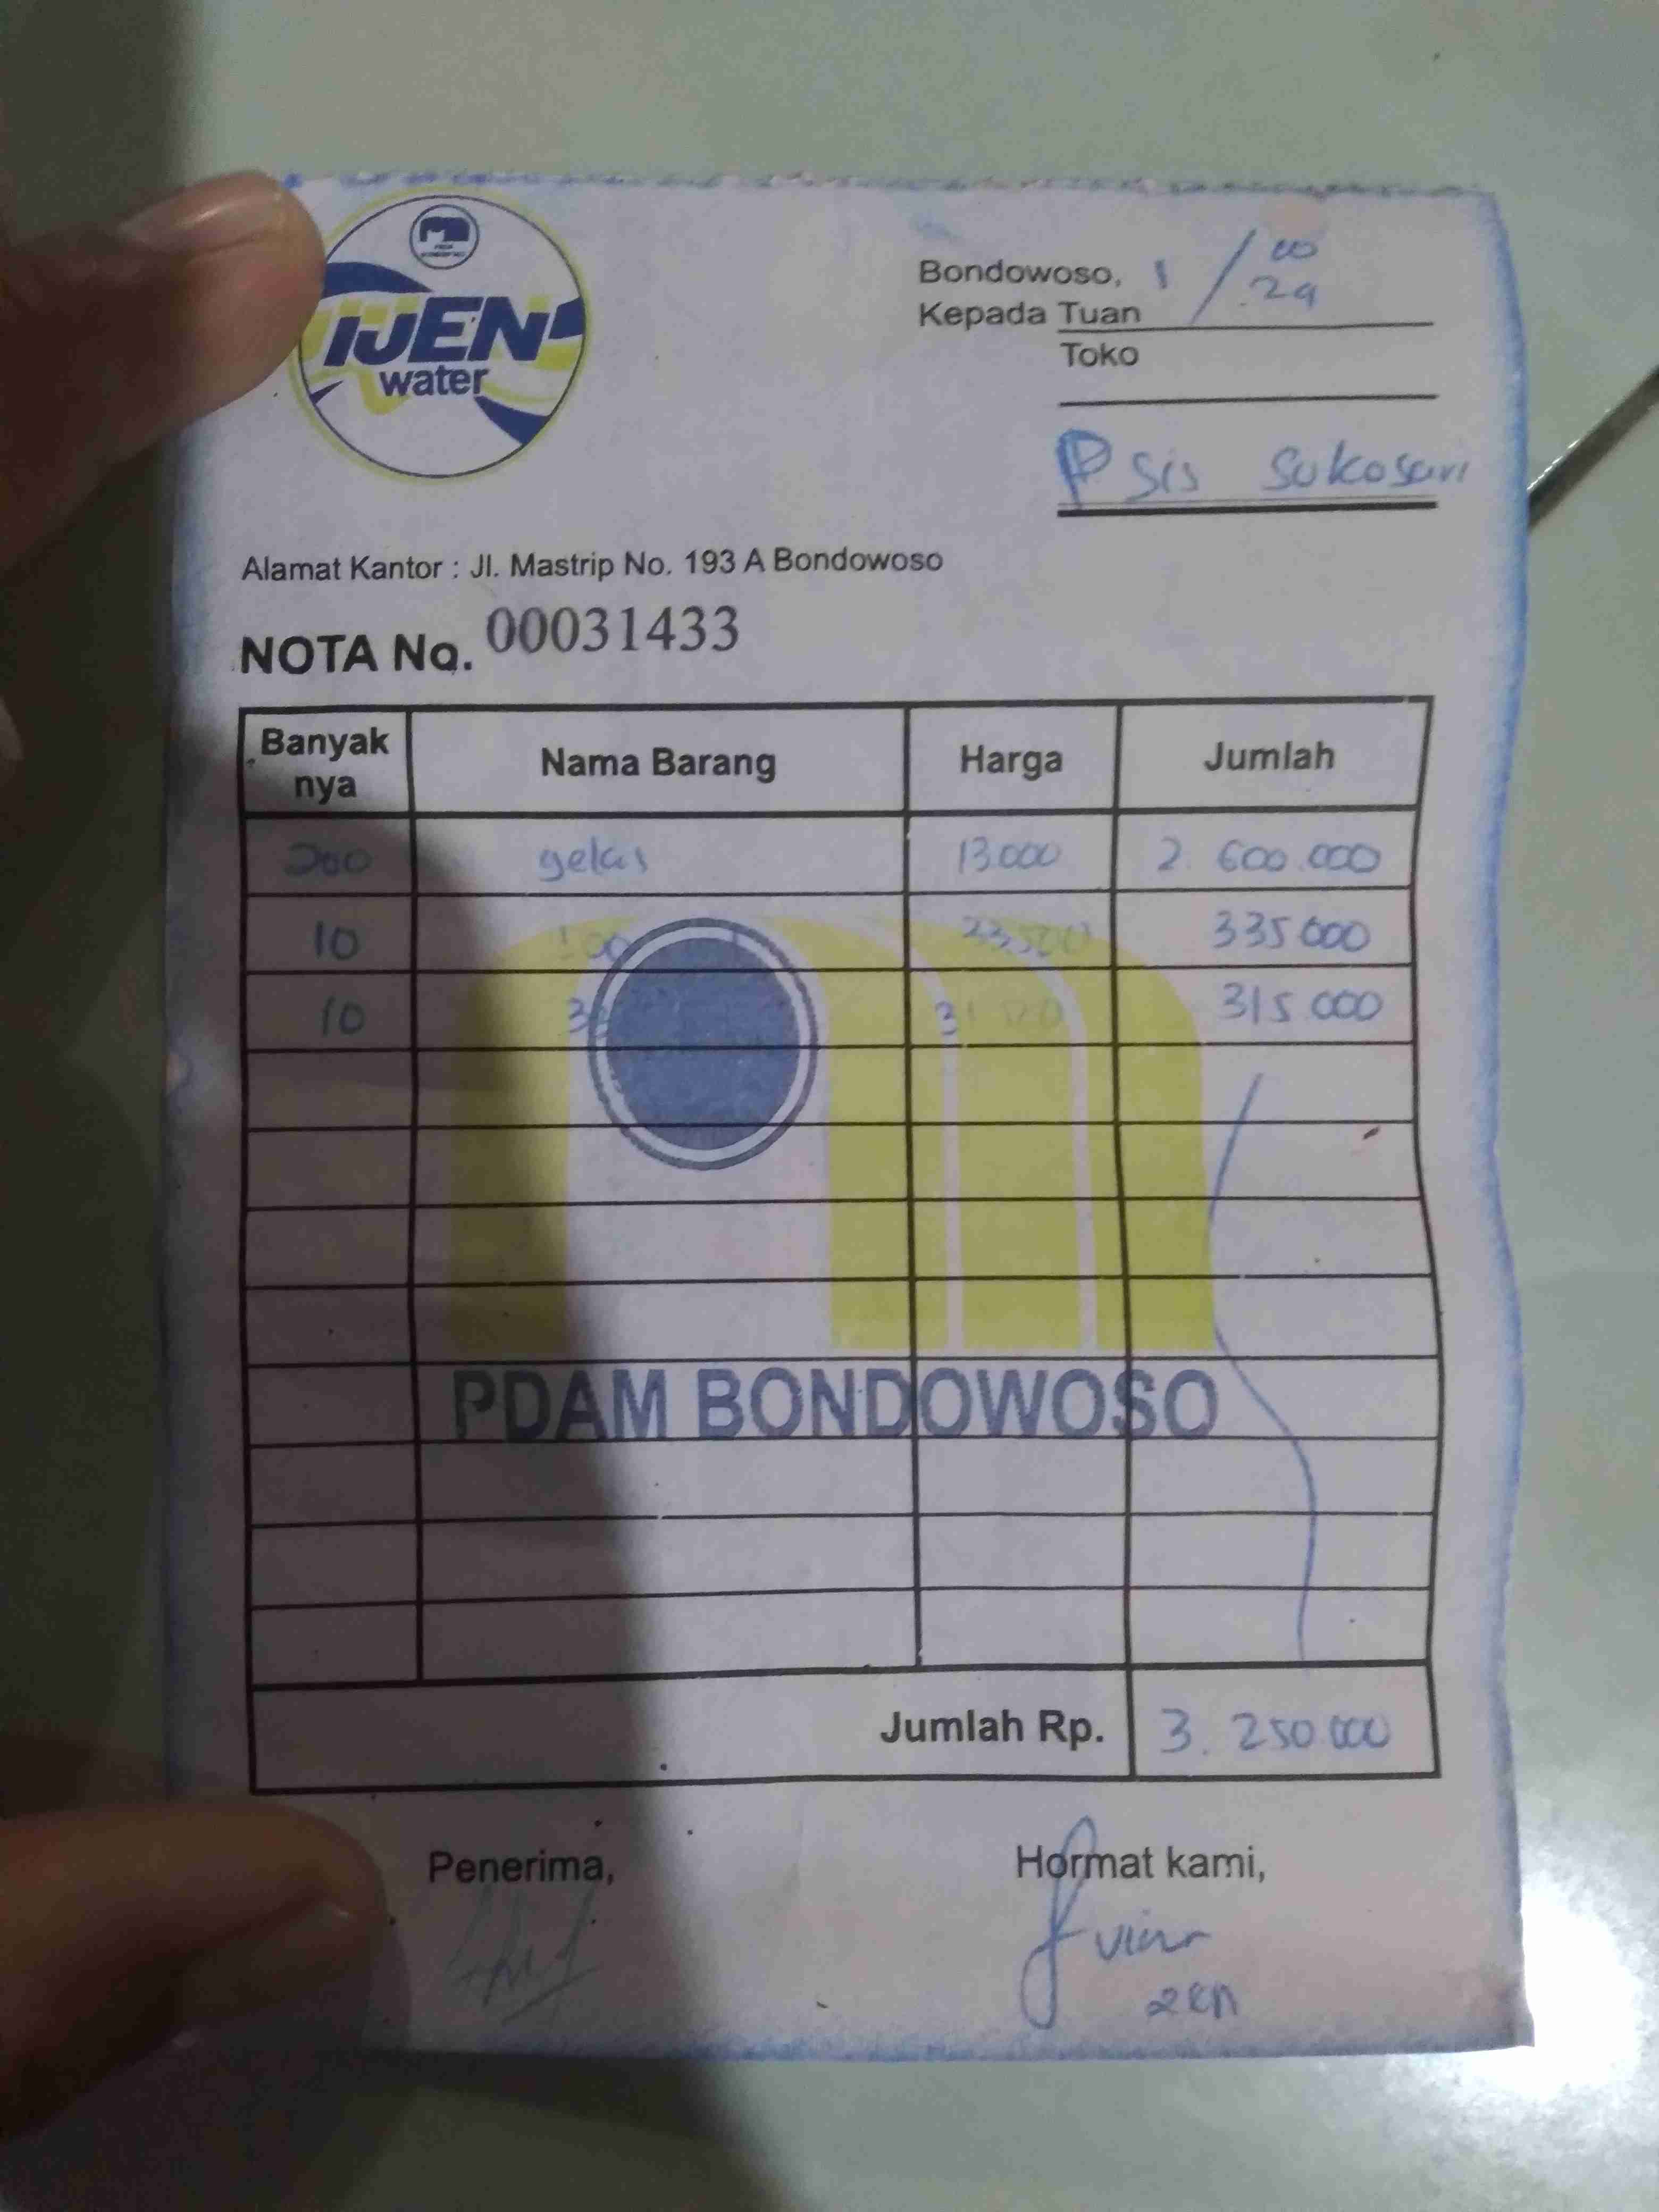 IJEN
water
Bondowoso, 1 /
Kepada Tuan
Toko
Sis Sukosari
Alamat Kantor : Jl. Mastrip No. 193 A Bondowoso
NOTA No. 00031433
Banyak nya Nama Barang Harga Jumlah
200 gelas 13.000 2.600.000
10 335.000
10 315.000
PDAM BONDOWOSO
Jumlah Rp. 3.250.000
Penerima, Hormat kami,